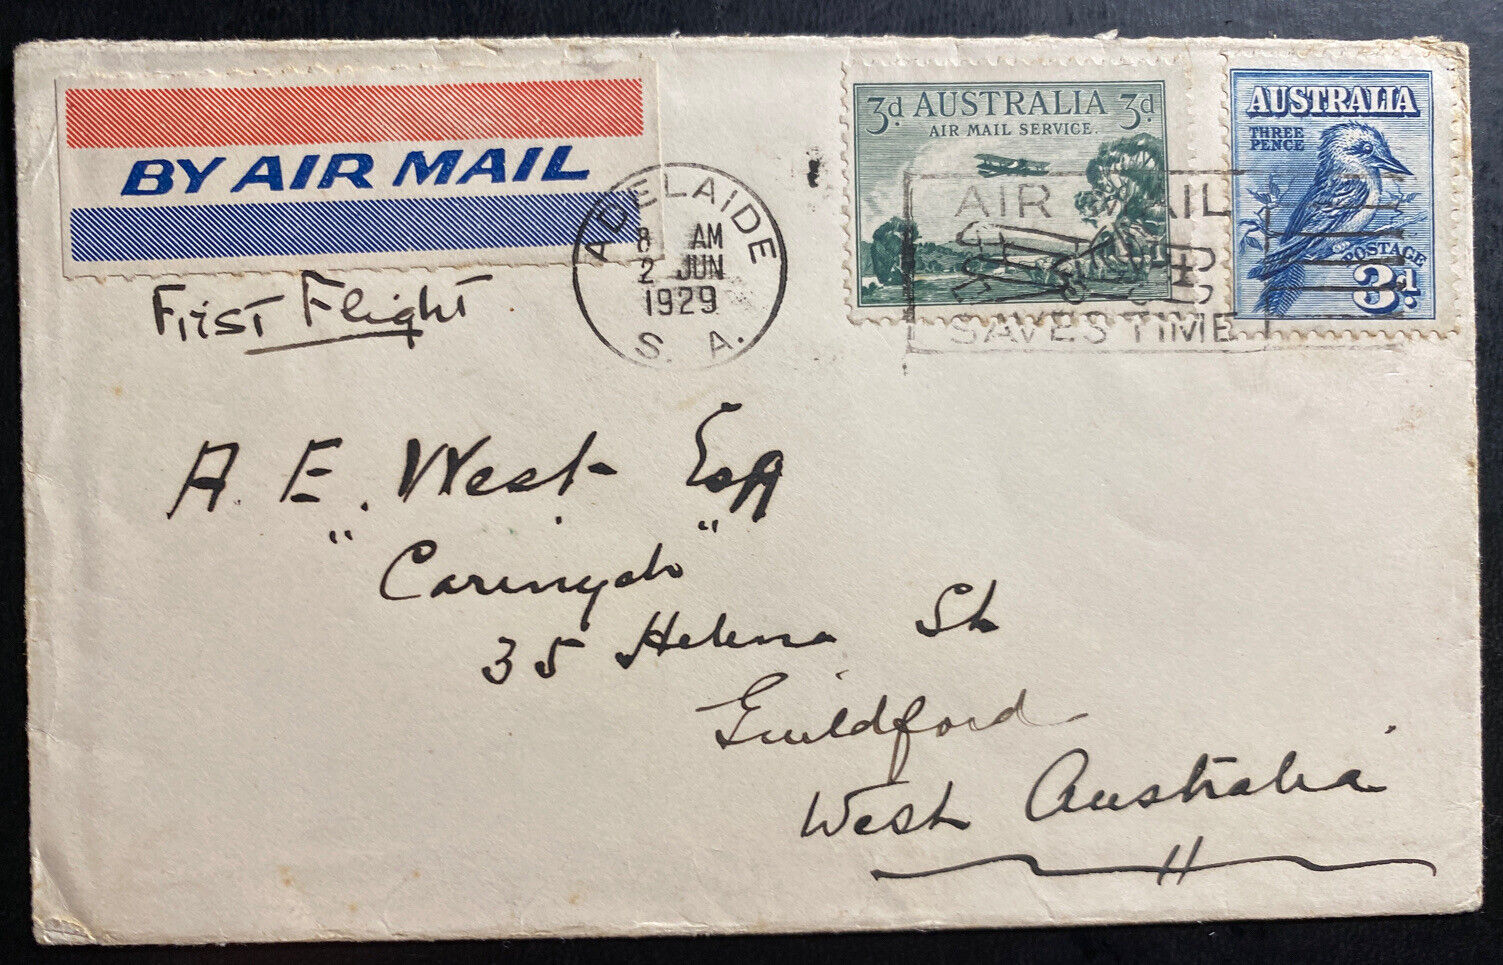 BY AIR MAIL
First Flight
ADELAIDE
8 AM
2 JUN
1929
S. A.
3d AUSTRALIA 3d
AIR MAIL SERVICE.
AUSTRALIA
THREE
PENCE
POSTAGE
3d.
AIR MAIL
SAVES TIME
A. E. West Esq
"Caringah"
35 Helena St
Guildford
West Australia